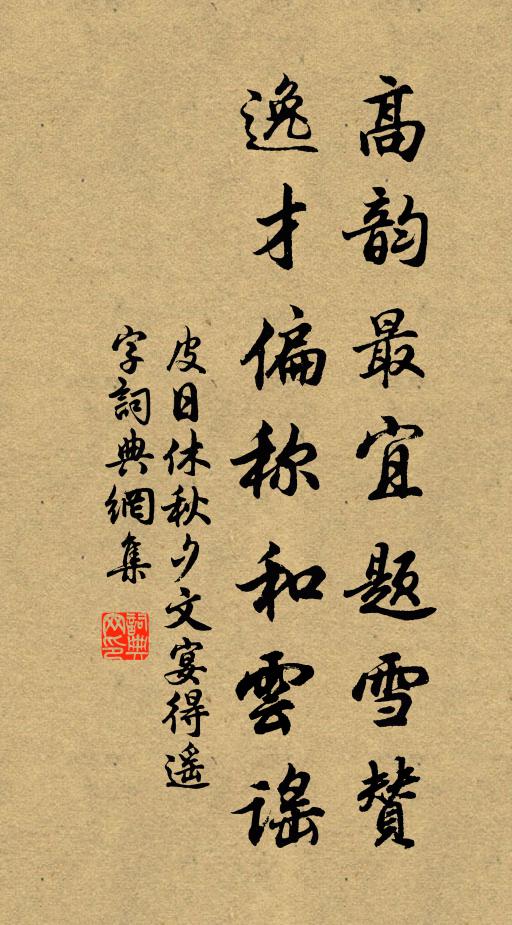 高韵最宜题雪赞
逸才偏称和雲謡
皮日休秋夕文宴得遥
字詞典網集
詞典网印